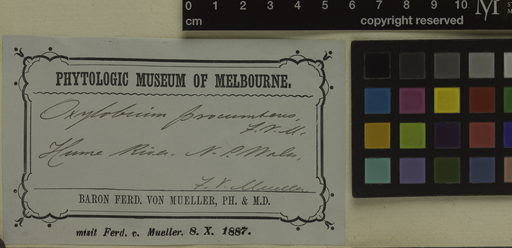 0 1 2 3 4 5 6 7 8 9 10
cm copyright reserved
PHYTOLOGIC MUSEUM OF MELBOURNE.
Oxylobium procumbens,
F. v. M.
Hume River. N. S. Wales,
F. v. Mueller
BARON FERD. VON MUELLER, PH. & M.D.
misit Ferd. v. Mueller. 8. X. 1887.